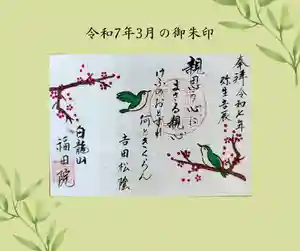 令和7年3月の御朱印
奉拝 令和七年
弥生吉辰
親思う心に
まさる親心
けふのおとずれ
何ときくらん
吉田松陰
白龍山
福田院